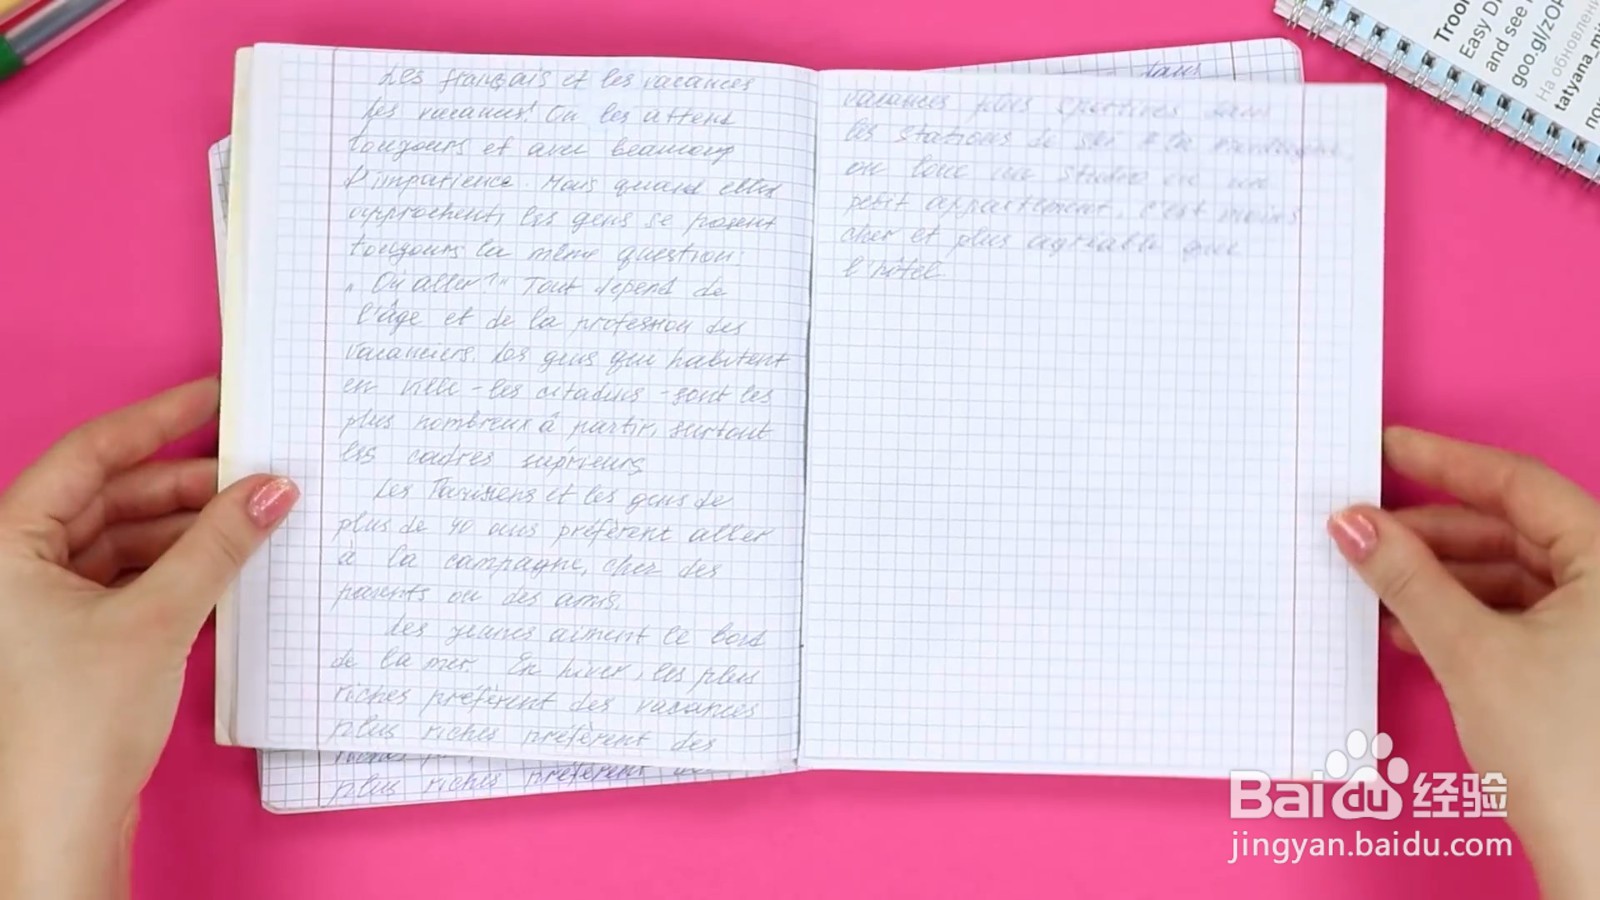 Les français et les vacances
Les vacances! On les attend
toujours et avec beaucoup
d'impatience. Mais quand elles
approchent, les gens se posent
toujours la même question:
„Où aller?" Tout depend de
l'âge et de la profession des
vacanciers. Les gens qui habitent
en ville - les citadins - sont les
plus nombreux à partir, surtout
les cadres supérieurs
Les Parisiens et les gens de
plus de 40 ans préfèrent aller
à la campagne, chez des
parents ou des amis.
Les jeunes aiment le bord
de la mer. En hiver, les plus
riches préfèrent des vacances
plus riches préfèrent des
plus riches préfèrent
dans
vacances plus sportives dans
les stations de ski
on loue un studio ou un
petit appartement c'est moins
cher et plus agréable que
l'hôtel
Troom
Easy D
and see
goo.gl/zOP
На обновлени
tatyana_mi
Baidu 经验
jingyan.baidu.com